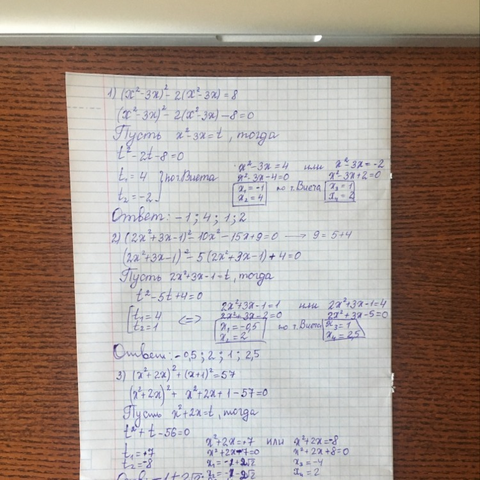 1) (x²-3x)²-2(x²-3x)=8
(x²-3x)²-2(x²-3x)-8=0
Пусть x²-3x=t, тогда
t²-2t-8=0
t₁=4 } по т. Виета x²-3x=4 или x²-3x=-2
t₂=-2 x²-3x-4=0 x²-3x+2=0
x₁=-1 по т. Виета x₁=1
x₂=4 x₂=2
Ответ: -1; 4; 1; 2
2) (2x²+3x-1)²-10x²-15x+9=0 → 9=5+4
(2x²+3x-1)²-5(2x²+3x-1)+4=0
Пусть 2x²+3x-1=t, тогда
t²-5t+4=0
t₁=4 <=> 2x²+3x-1=1 или 2x²+3x-1=4
t₂=1 2x²+3x-2=0 2x²+3x-5=0
x₁=-0,5 по т. Виета x₃=1
x₂=2 x₄=2,5
Ответ: -0,5; 2; 1; 2,5
3) (x²+2x)²+(x+1)²=57
(x²+2x)²+x²+2x+1-57=0
Пусть x²+2x=t, тогда
t²+t-56=0
t₁=+7 x²+2x=+7 или x²+2x=-8
t₂=-8 x²+2x-7=0 x²+2x+8=0
x₁=-1+2√2 x₃=-4
x₂=-1-2√2 x₄=2